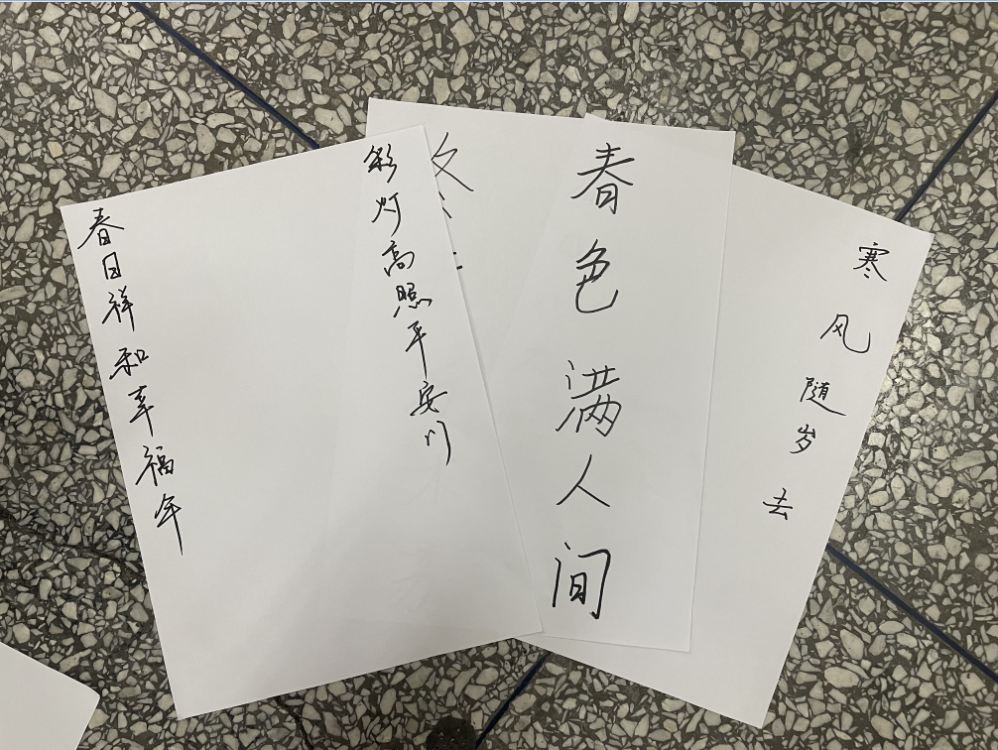 寒风随岁去
春色满人间
彩灯高照平安川
春日祥和幸福年